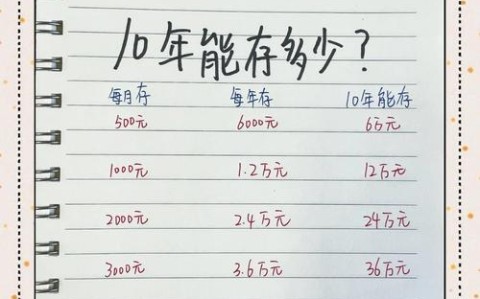 10年能存多少?
每月存 每年存 10年能存
500元 6000元 6万元
1000元 1.2万元 12万元
2000元 2.4万元 24万元
3000元 3.6万元 36万元